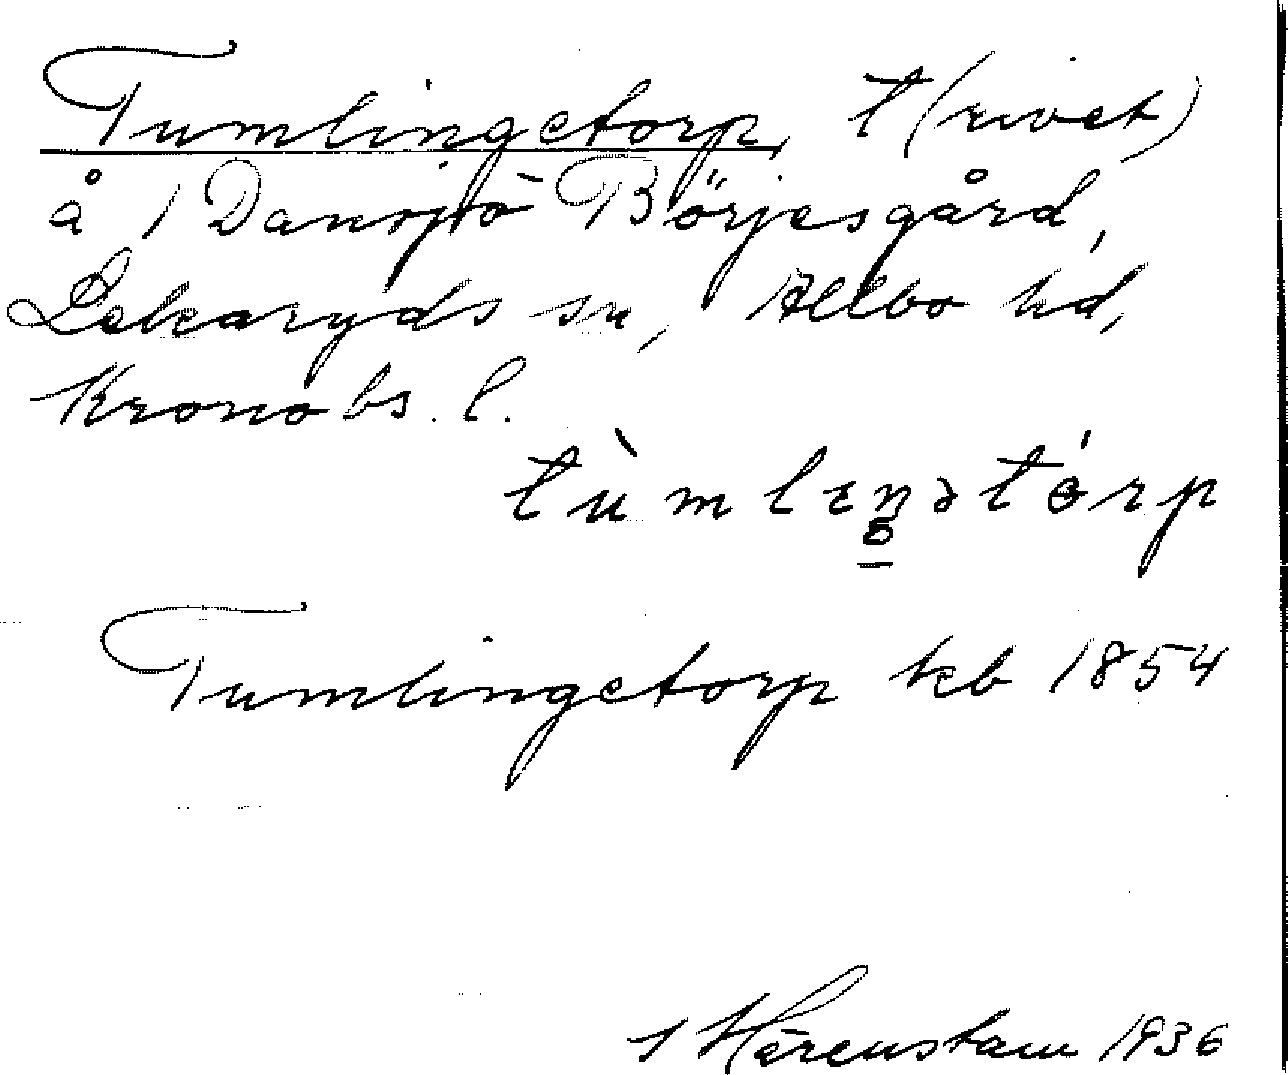 Tumlingetorp, t (rivet)
å 1 Dansjö Börjesgård,
Lekaryds sn, Allbo hd,
Kronobs. l.
tùmleŋətórp
Tumlingetorp kb 1854
Härenstam 1936